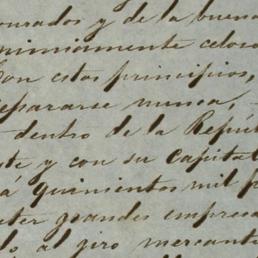 onrados y de la buena
nimiamente celoso
Con estos principios,
epararse nunca,
dentro de la Repú
te y con su capital
á quinientos mil p
ter grandes empresa
lo al giro mercanti